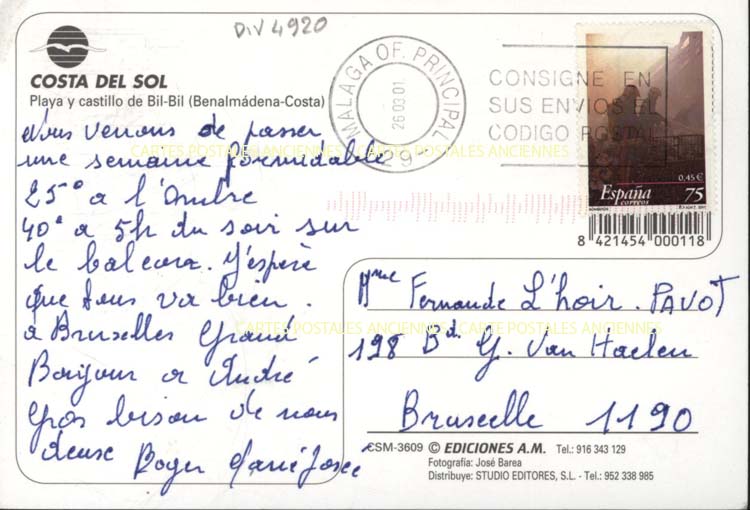 DIV 4920
COSTA DEL SOL
Playa y castillo de Bil-Bil (Benalmádena-Costa)
MALAGA OF. PRINCIPAL
26 03 01
29
CONSIGNE EN
SUS ENVIOS EL
CODIGO POSTAL
0,45 €
España
correos
75
8 421454 000118
Nous venons de passer
une semaine formidable
25° a l'ombre
40° a 5h du soir sur
le balcon. J'espère
que tous va bien.
a Bruxelles Grand
Bonjour a André
Gros bisou de nous
deuse Roger Marie Josée
Mme Fernande L'hoir. PAVOT
198 Bd. G. Van Haelen
Bruxelle 1190
CARTES POSTALES ANCIENNES - CARTE POSTALES ANCIENNES
CARTES POSTALES ANCIENNES - CARTE POSTALES ANCIENNES
CSM-3609 © EDICIONES A.M. Tel.: 916 343 129
Fotografía: José Barea
Distribuye: STUDIO EDITORES, S.L. - Tel.: 952 338 985